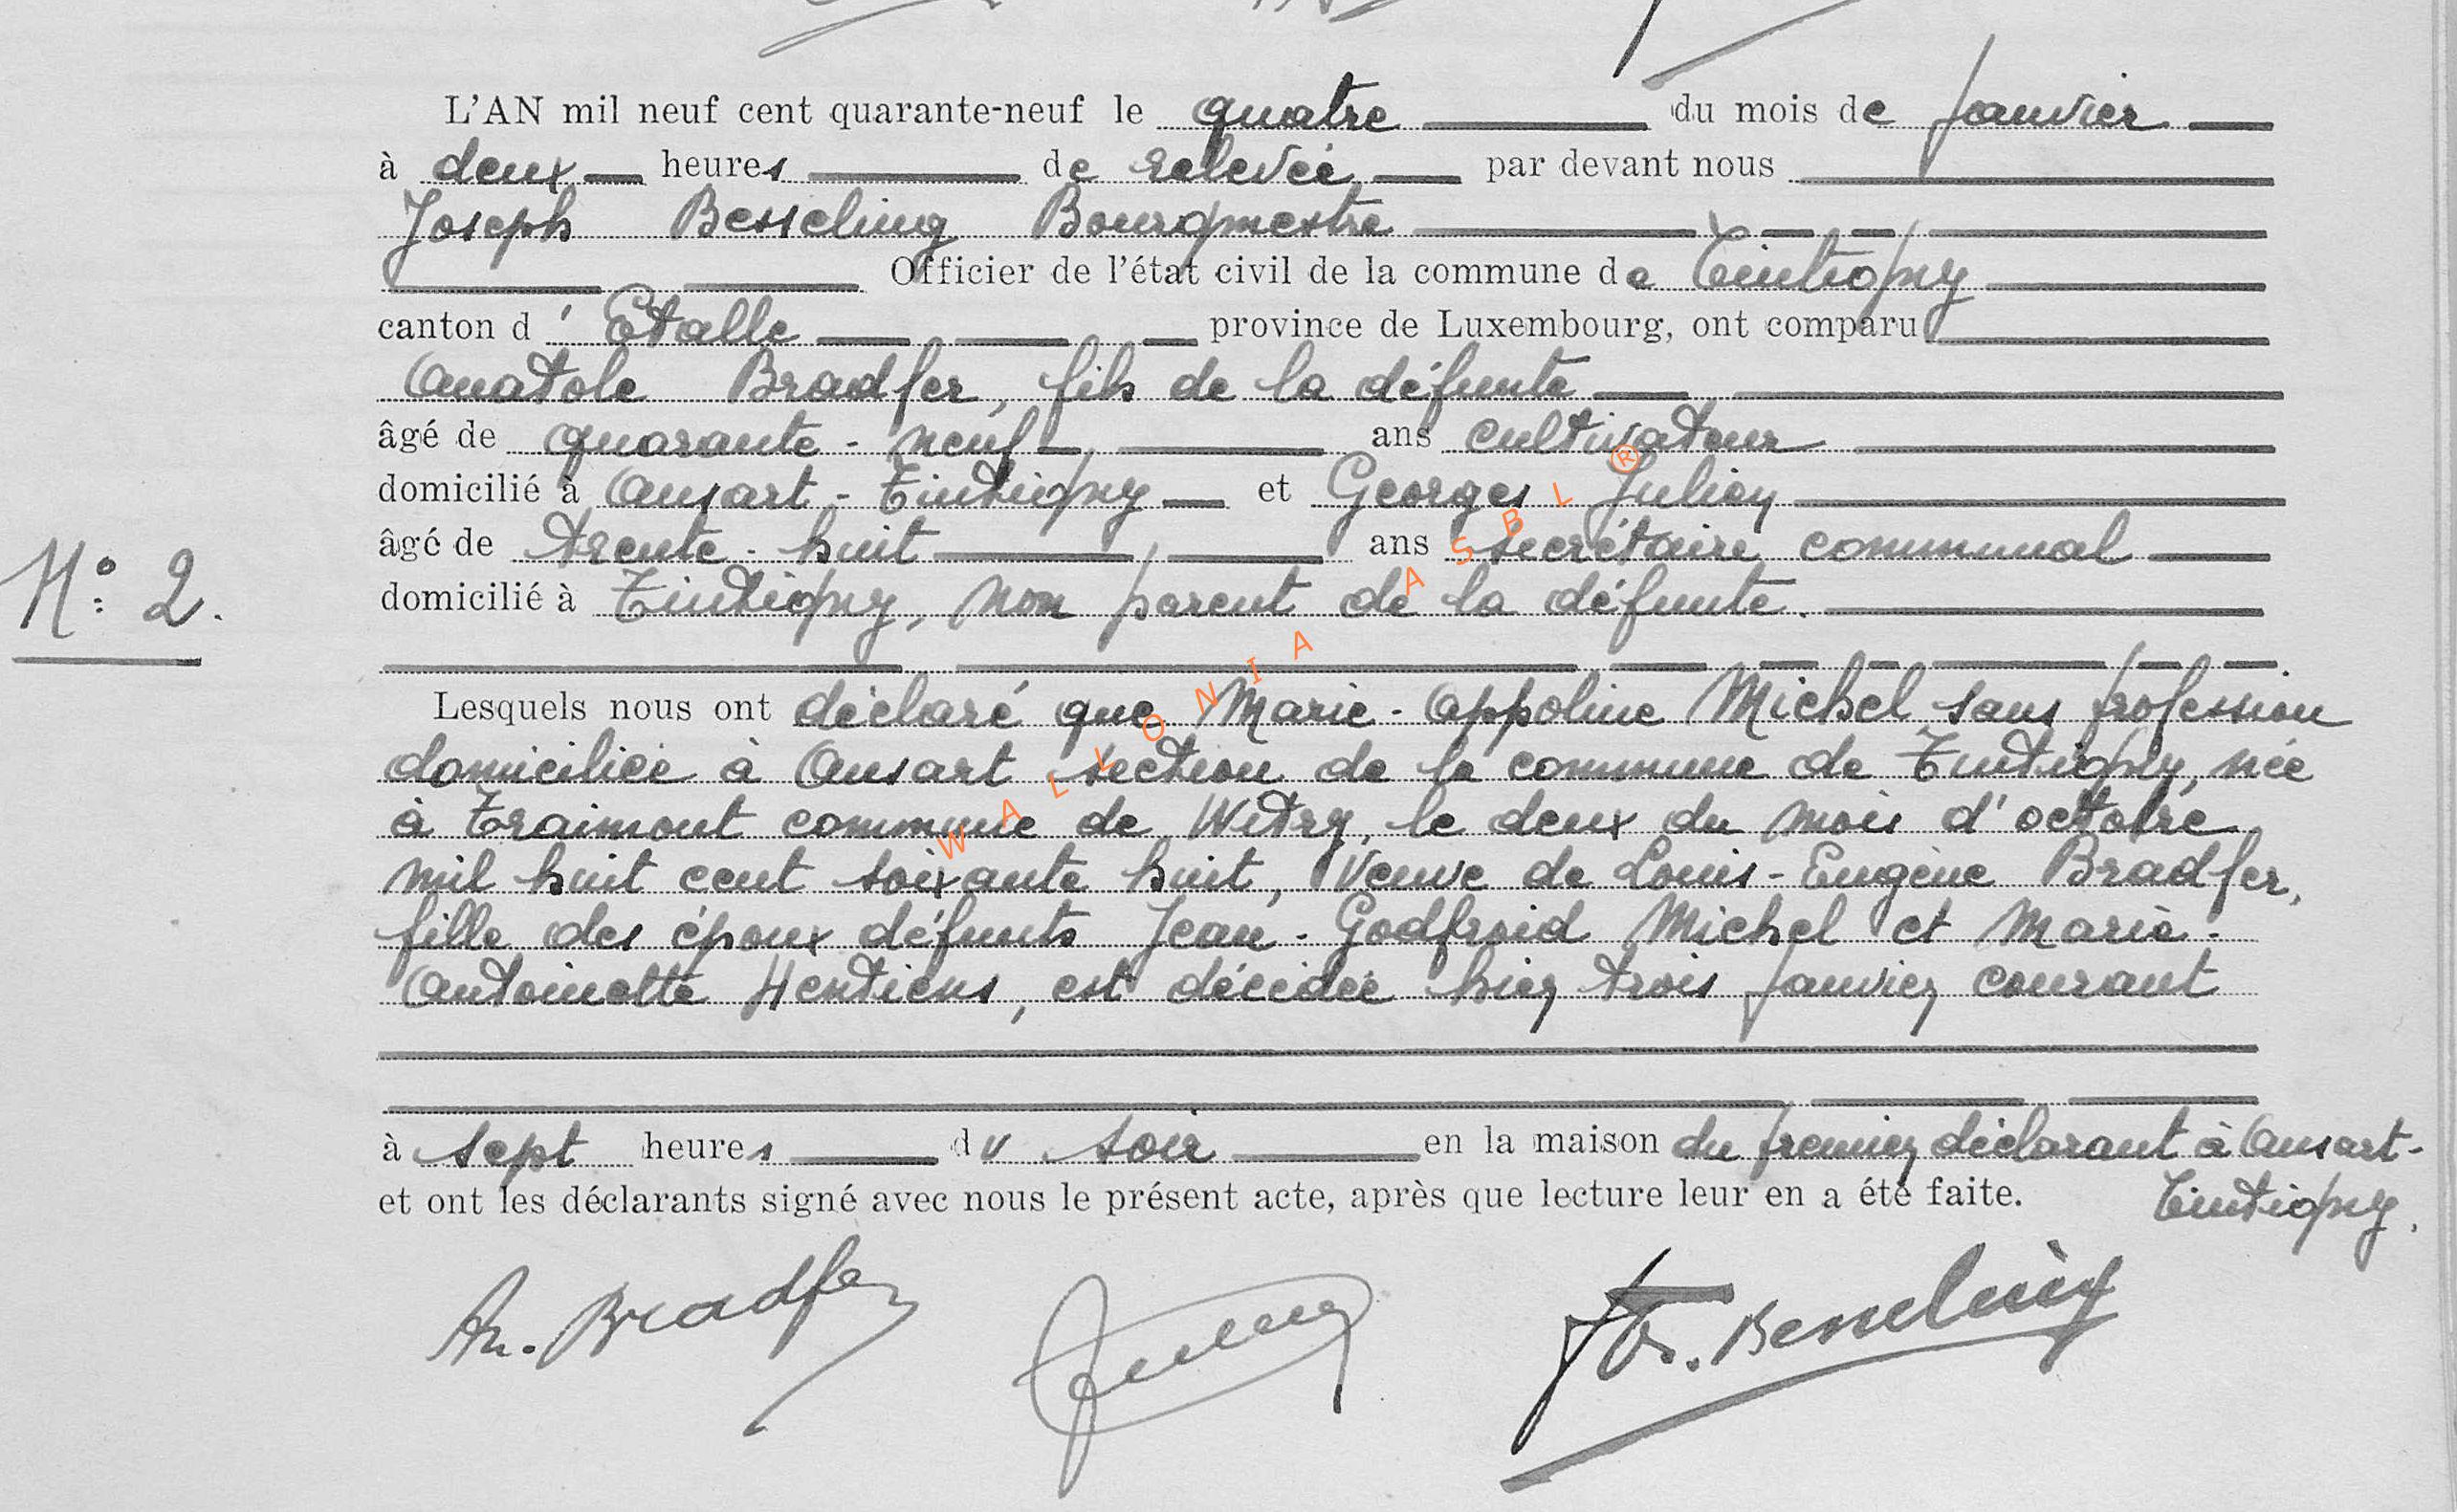 L'AN mil neuf cent quarante-neuf le quatre du mois de Janvier
à deux heures de relevée par devant nous
Joseph Besseling Bourgmestre
Officier de l'état civil de la commune de Tintigny
canton d'Etalle province de Luxembourg, ont comparu
Anatole Bradfer, fils de la défunte
âgé de quarante-neuf ans cultivateur
domicilié à Ansart-Tintigny et Georges Julien
âgé de trente-huit ans secrétaire communal
N° 2.
domicilié à Tintigny, non parent de la défunte.
Lesquels nous ont déclaré que Marie-Appoline Michel sans profession
domiciliée à Ansart section de la commune de Tintigny, née
à Traimont commune de Witry, le deux du mois d'octobre
mil huit cent soixante huit, Veuve de Louis-Eugène Bradfer,
fille des époux défunts Jean-Godfroid Michel et Marie-
Antoinette Hentiens, est décédée hier trois Janvier courant
à sept heures du soir en la maison du premier déclarant à Ansart-
Tintigny.
et ont les déclarants signé avec nous le présent acte, après que lecture leur en a été faite.
An. Bradfer
Besseling
WALLONIA ASBL ®